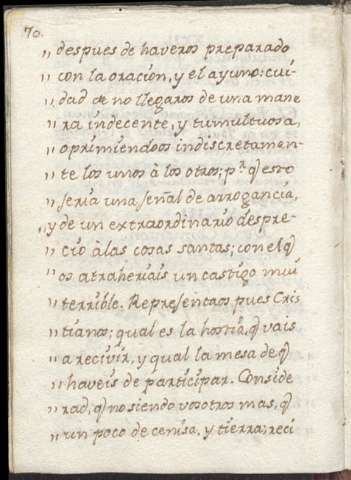 70.
„ despues de haveros preparado
„ con la oración, y el ayuno: cui-
„ dad de no llegaros de una mane
„ ra indecente, y tumultuosa,
„ oprimiendoos indiscretamen-
„ te los unos à los otros; p.r q̃ esto
„ seria una señal de arrogancia,
„ y de un extraordinario despre-
„ cio à las cosas santas; con el q̃
„ os atraheriais un castigo mui
„ terrible. Representaos pues Cris
„ tianos; qual es la hostia, q̃ vais
„ a recivir, y qual la mesa de q̃
„ haveis de participar. Conside
„ rad, q̃ no siendo vosotros mas, q̃
„ un poco de cenisa, y tierra; reci